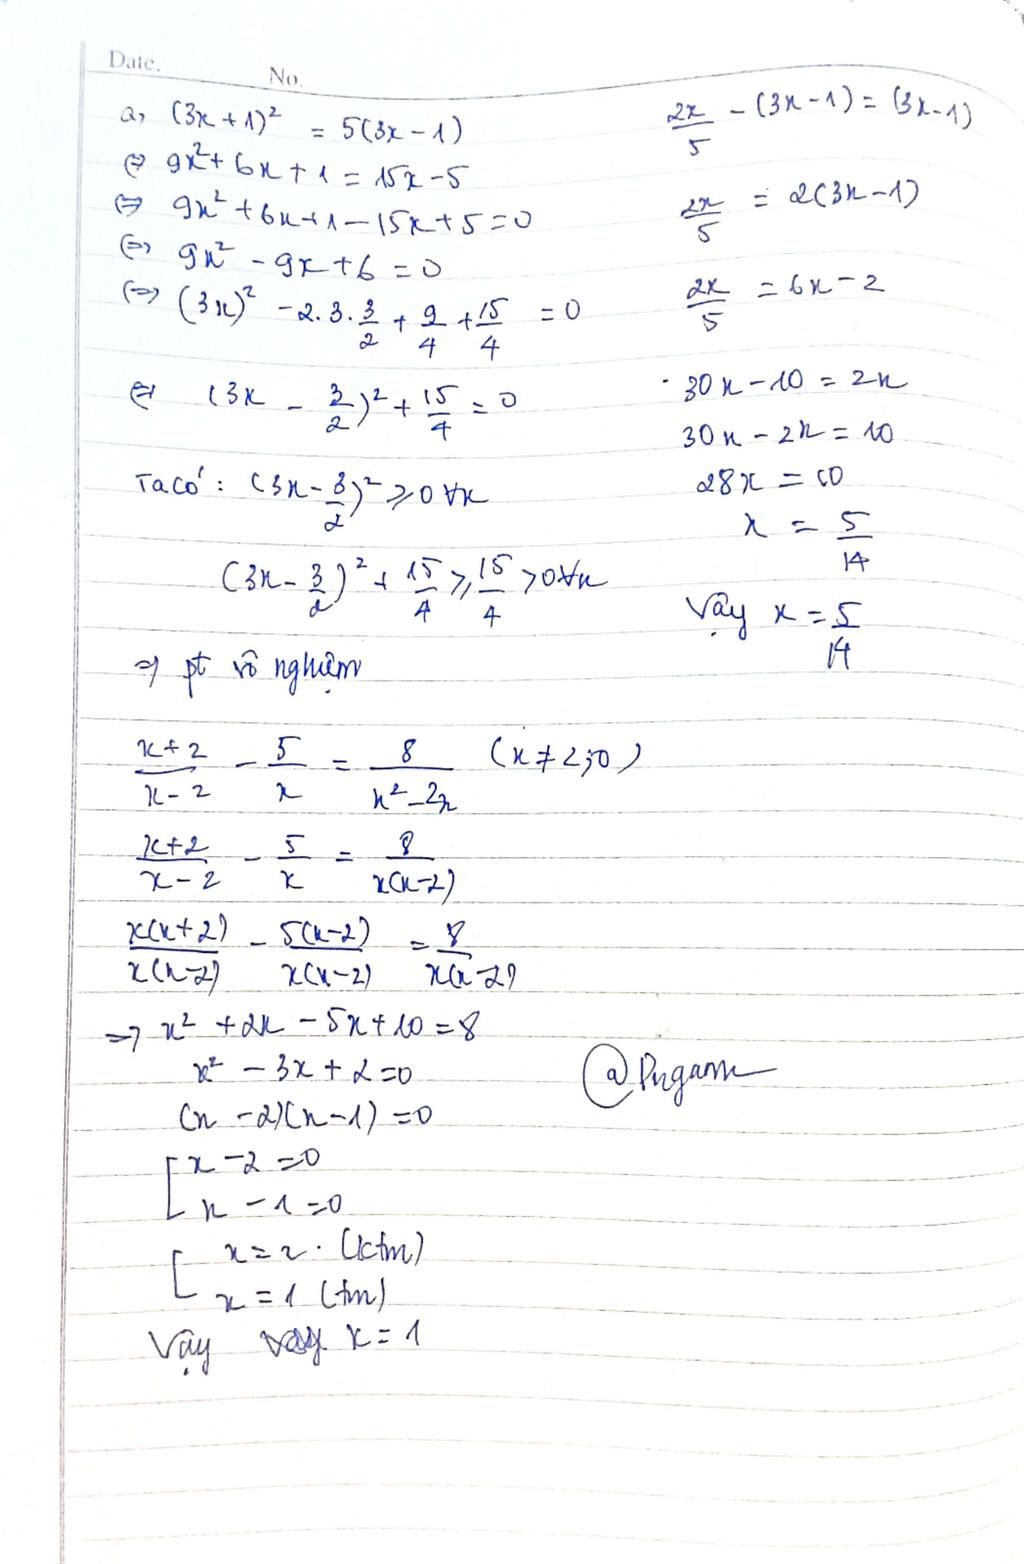 Date.
No.
a, (3x + 1)² = 5(3x - 1)
⇔ 9x² + 6x + 1 = 15x - 5
⇔ 9x² + 6x + 1 - 15x + 5 = 0
⇔ 9x² - 9x + 6 = 0
⇔ (3x)² - 2.3.3/2 + 9/4 + 15/4 = 0
⇔ (3x - 3/2)² + 15/4 = 0
Ta có: (3x - 3/2)² ⩾ 0 ∀x
(3x - 3/2)² + 15/4 ⩾ 15/4 > 0 ∀x
⇒ pt vô nghiệm
2x/5 - (3x - 1) = (3x - 1)
2x/5 = 2(3x - 1)
2x/5 = 6x - 2
30x - 10 = 2x
30x - 2x = 10
28x = 10
x = 5/14
Vậy x = 5/14
x+2/x-2 - 5/x = 8/x²-2x (x ≠ 2;0)
x+2/x-2 - 5/x = 8/x(x-2)
x(x+2)/x(x-2) - 5(x-2)/x(x-2) = 8/x(x-2)
⇒ x² + 2x - 5x + 10 = 8
x² - 3x + 2 = 0
(x - 2)(x - 1) = 0
[ x - 2 = 0
x - 1 = 0
[ x = 2. (ktm)
x = 1 (tm)
Vậy vậy x = 1